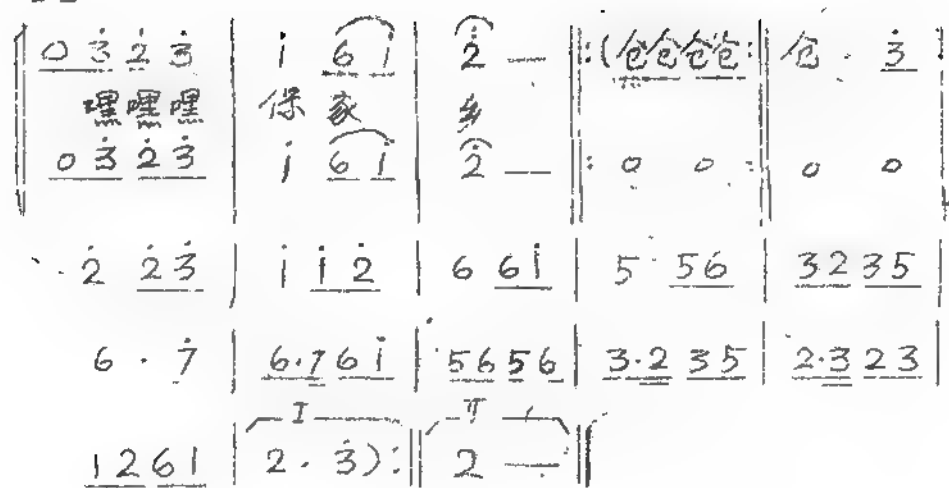 0 3̇ 2̇ 3̇ | i̇ 6 i̇ | 2̇ — ‖: (仓仓仓仓 :‖ 仓 · 3̇ |
嘿嘿嘿 保家 乡
0 3̇ 2̇ 3̇ | i̇ 6 i̇ | 2̇ — ‖: 0 0 :‖ 0 0 |
2̇ 2̇ 3̇ | i̇ i̇ 2̇ | 6 6 i̇ | 5 5 6 | 3 2 3 5 |
6 · 7̇ | 6 · 7 6 i̇ | 5 6 5 6 | 3 · 2 3 5 | 2 · 3 2 3 |
I II
1 2 6 1 | 2 · 3̇) :‖ 2 — ‖